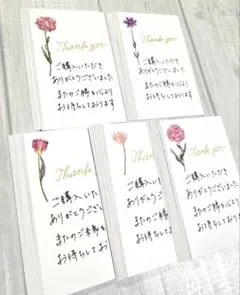 Thank you
ご購入いただき
ありがとうございました
またのご縁がありますよう
お待ちしております
Thank you
ご購入いただき
ありがとうございました
またのご縁を心より
お待ちしております
Thank
ご購入いた
ありがとうござ
またのご縁
お待ちしてお
Thank
ご購入いた
ありがとう
またの
お待ち
Thank you
ご購入いた
ありがとうござ
またのご縁
お待ちしてお